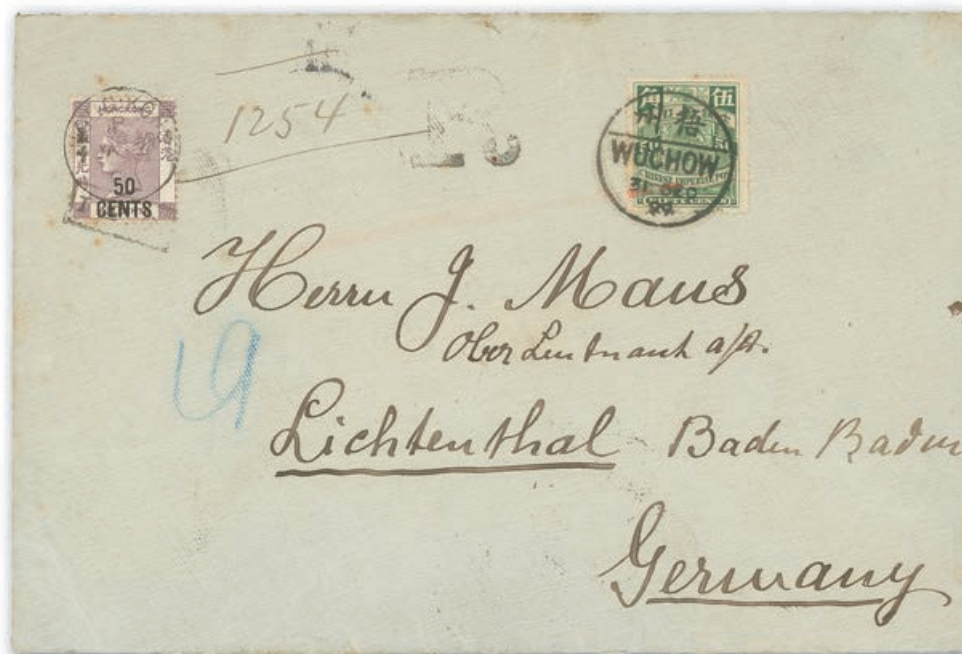 HONG KONG
50
CENTS
1254
R
角 伍
梧州
WUCHOW
31 DEC
99
CHINESE IMPERIAL POST
Herrn J. Maus
Ober Leutnant a/D.
Lichtenthal Baden Baden
Germany
19